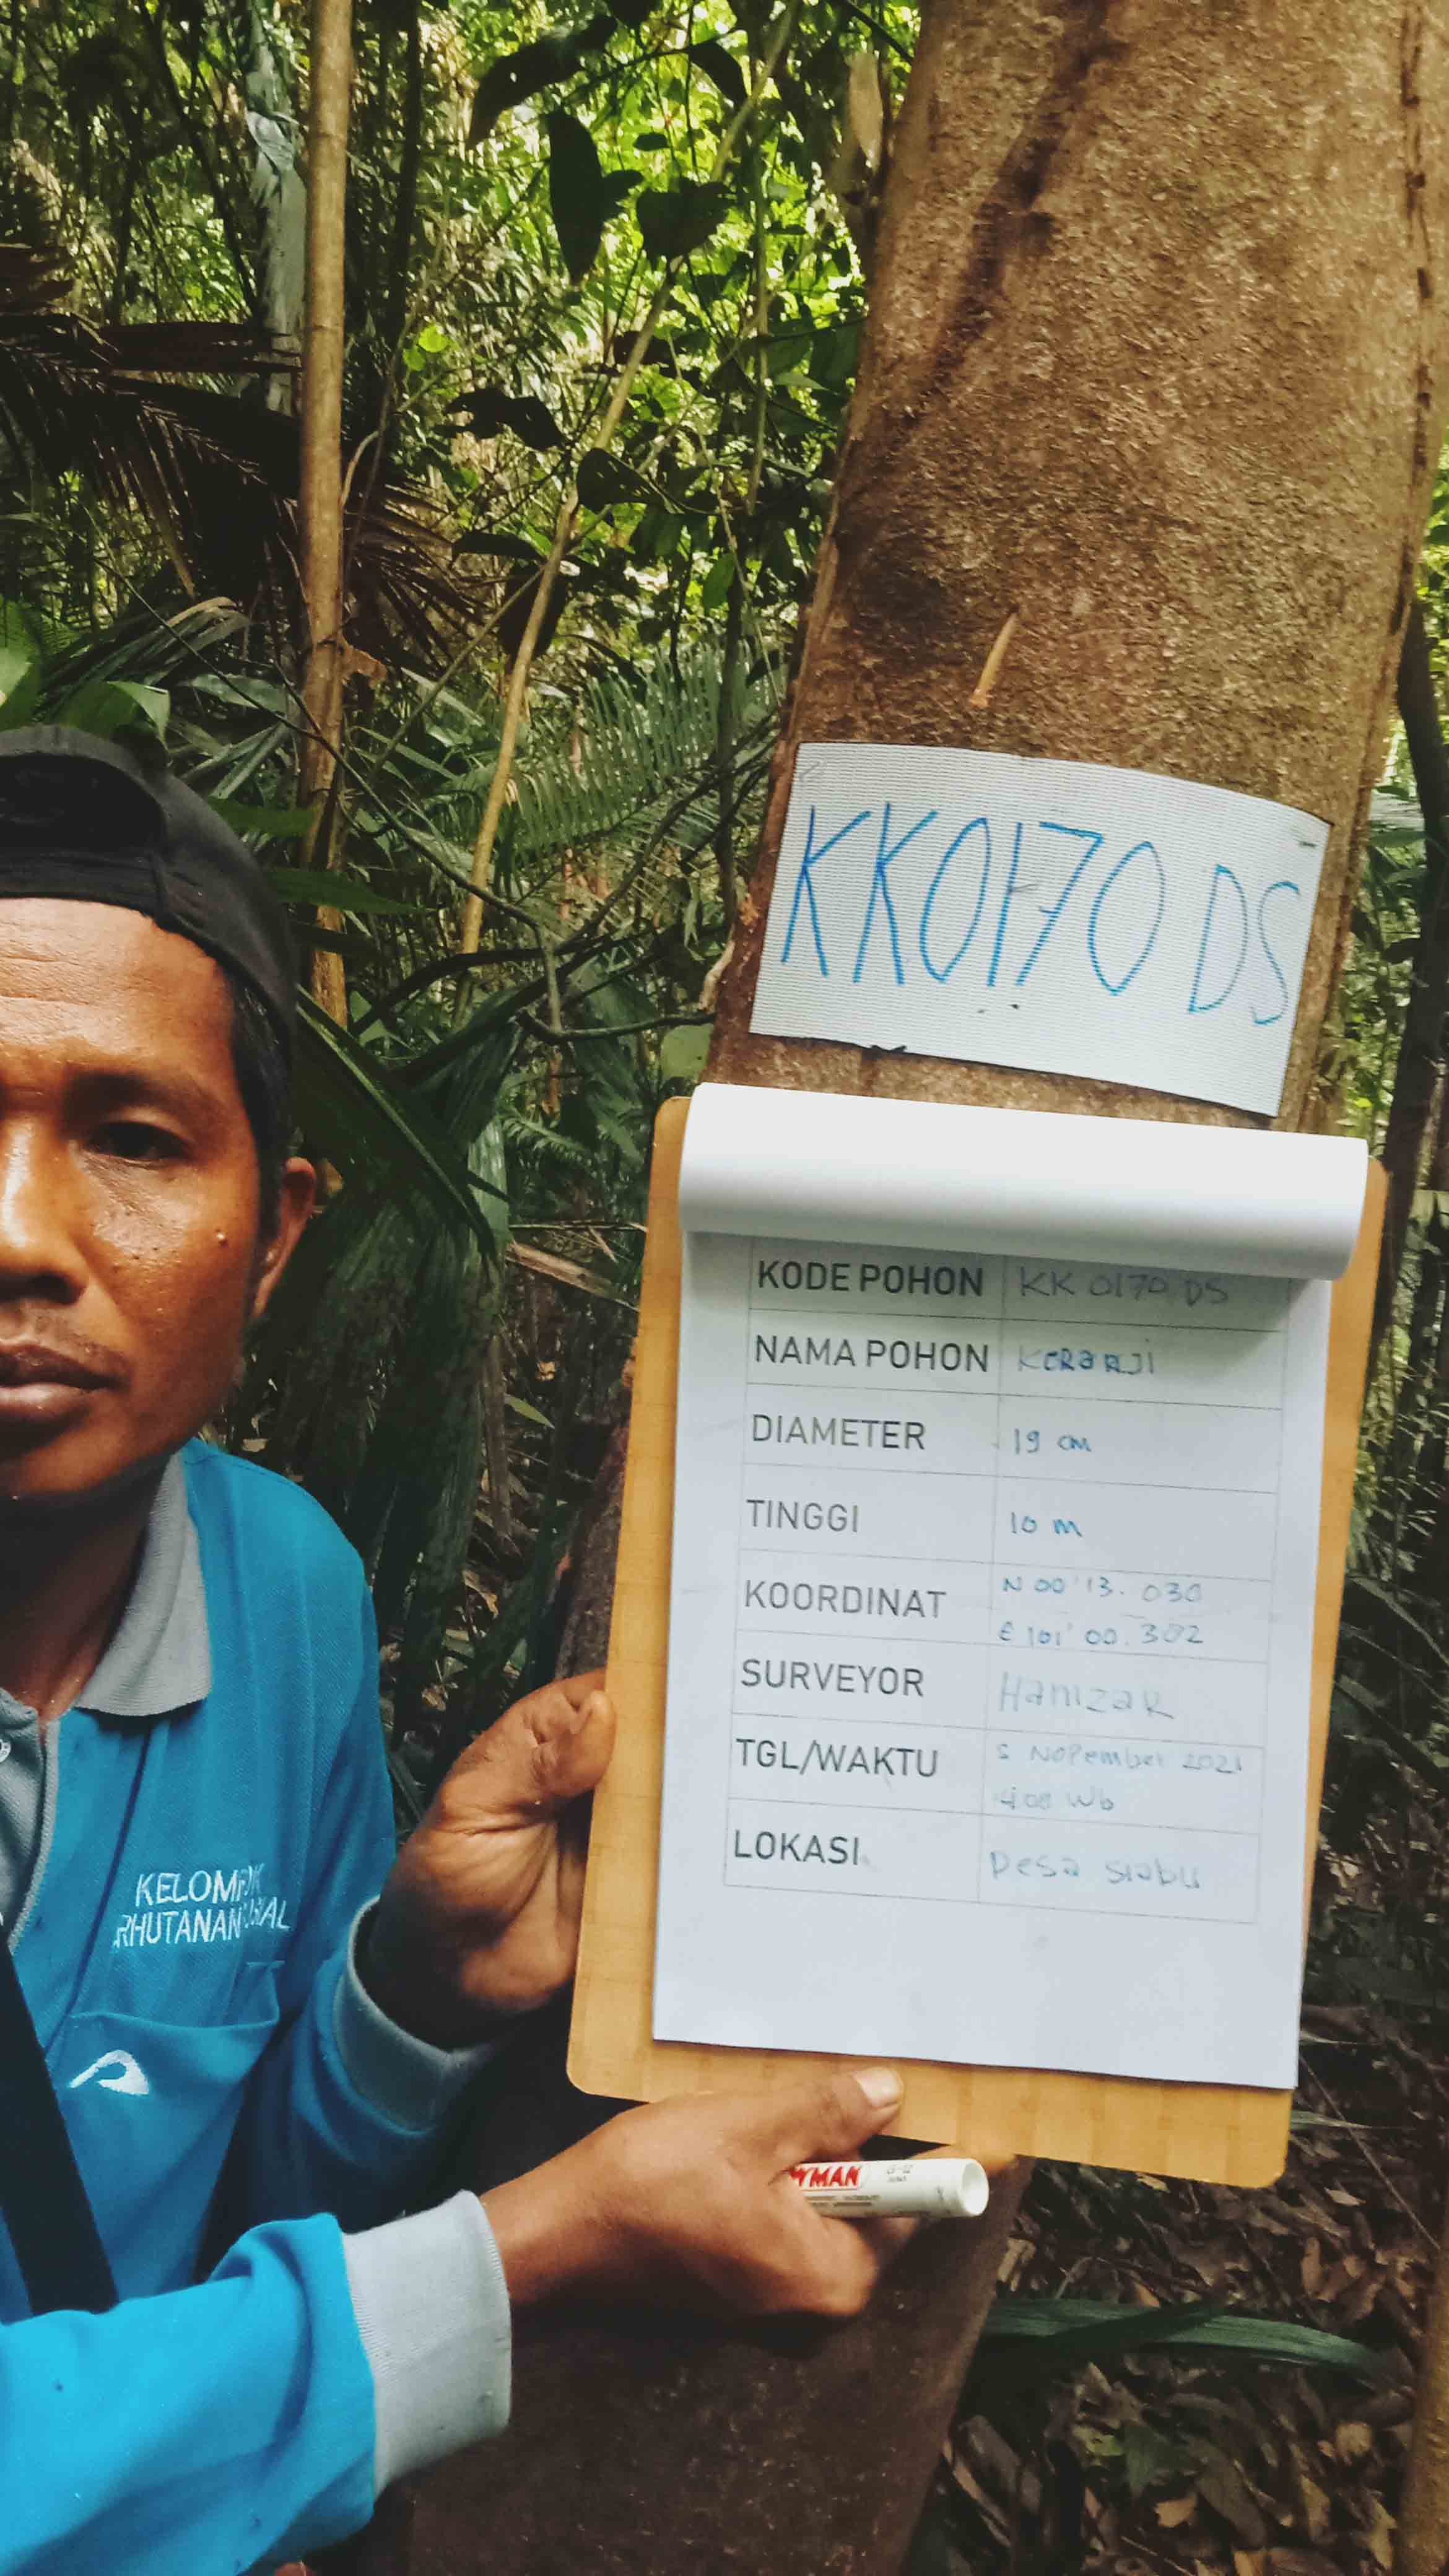 KK0170 DS
KODE POHON KK 0170 DS
NAMA POHON KERANJI
DIAMETER 19 cm
TINGGI 10 m
KOORDINAT N 00' 13. 030
E 101' 00. 302
SURVEYOR HanizaR
TGL/WAKTU 5 NoPember 2021
14.00 Wb
LOKASI Desa siabu
KELOMPOK
RHUTANAN SOSIAL
WMAN